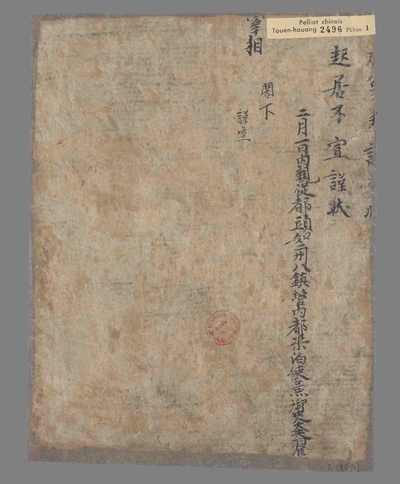 Pelliot chinois
Touen-houang 2496 Pièce 1
起居不宣謹狀
二月一日內親從都頭知二州八鎮管內都渠泊使兼御史大夫翟
宰相
閣下
謹空